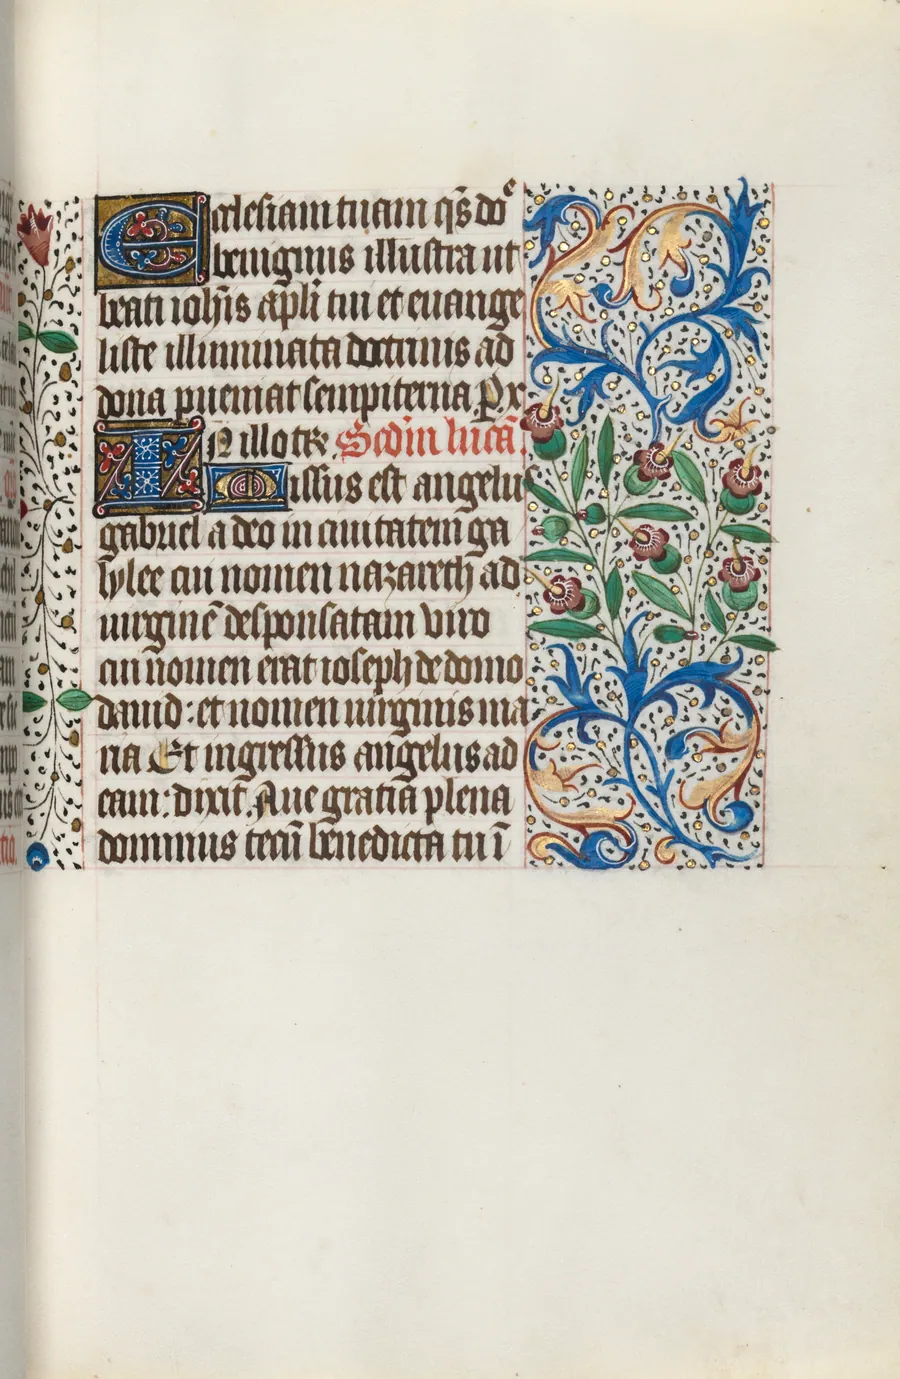 Ecclesiam tuam q̄s dn̄e
benignus illustra ut
beati ioh̄is apl̄i tui et euange
liste illuminata doctrinis ad
dona pueniat sempiterna. Px
IN illo tr̄. Scd̄m lucā.
Missus est angelus
gabriel a deo in ciuitatem ga
lylee cui nomen nazareth ad
uirginē desponsatam viro
cui nomen erat ioseph de domo
dauid: et nomen uirginis ma
ria Et ingressus angelus ad
eam: dixit. Aue gratia plena
dominus tecū benedicta tu ī